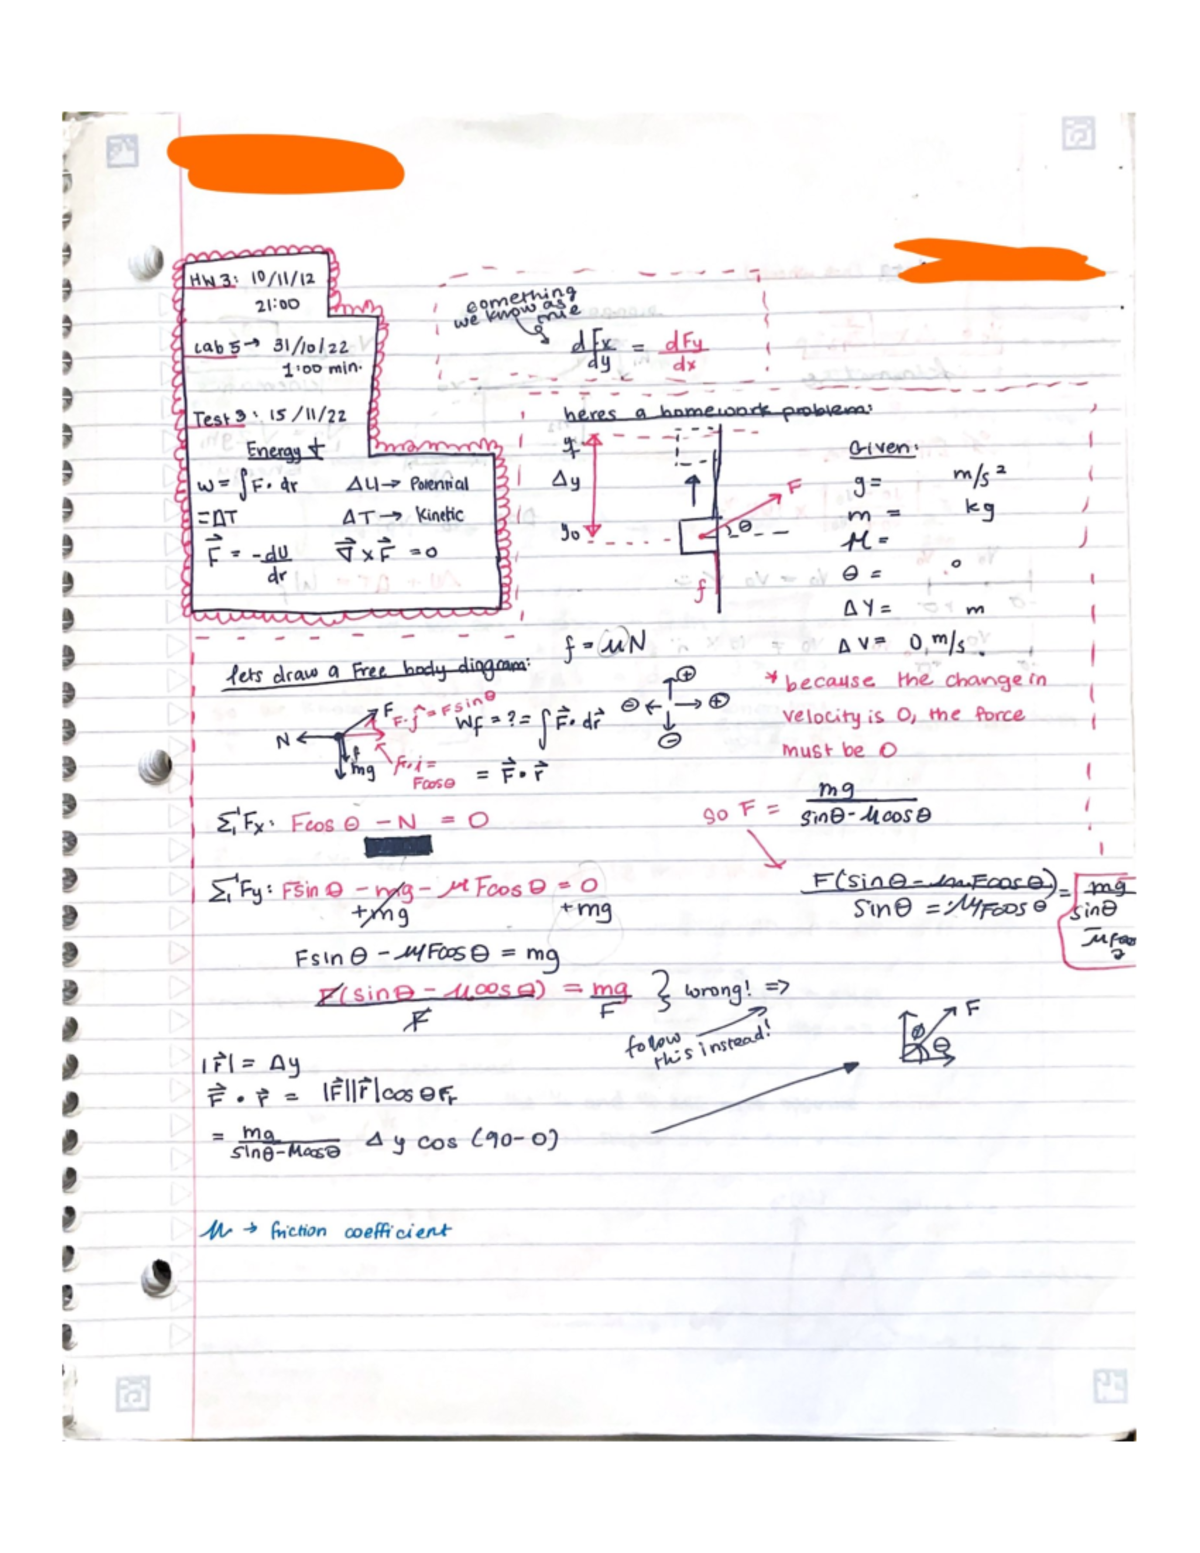 HW 3: 10/11/12
21:00
Lab 5 → 31/10/22
1:00 min.
Test 3: 15/11/22
Energy
W = ∫F · dr ΔU → Potential
= ΔT ΔT → Kinetic
F⃗ = -dU/dr ∇⃗ × F⃗ = 0
something
we know as
true
dFx/dy = dFy/dx
heres a homework problem:
y
Δy
y₀
F
θ
f
Given:
g = m/s²
m = kg
μ =
θ = °
ΔY = m
ΔV = 0, m/s.
f = μN
lets draw a Free body diagram:
F
F·ĵ = F sinθ
N
f
mg
F·i =
Fcosθ
Wf = ? = ∫F⃗ · dr⃗
= F⃗ · r⃗
⊕
⊖ ← → ⊕
⊖
* because the change in
velocity is 0, the force
must be 0
ΣFx: Fcosθ - N = 0
so F = mg/(sinθ - μcosθ)
ΣFy: Fsinθ - mg - μFcosθ = 0
+mg +mg
F(sinθ - μFcosθ)/(sinθ = μFcosθ) = mg/sinθ
Fsinθ - μFcosθ = mg
F(sinθ - μcosθ)/F = mg/F } wrong! =>
follow
this instead!
F
ϕ
θ
|r⃗| = Δy
F⃗ · r⃗ = |F⃗||r⃗|cosθFr
= mg/(sinθ - μcosθ) Δy cos(90-0)
μ → friction coefficient